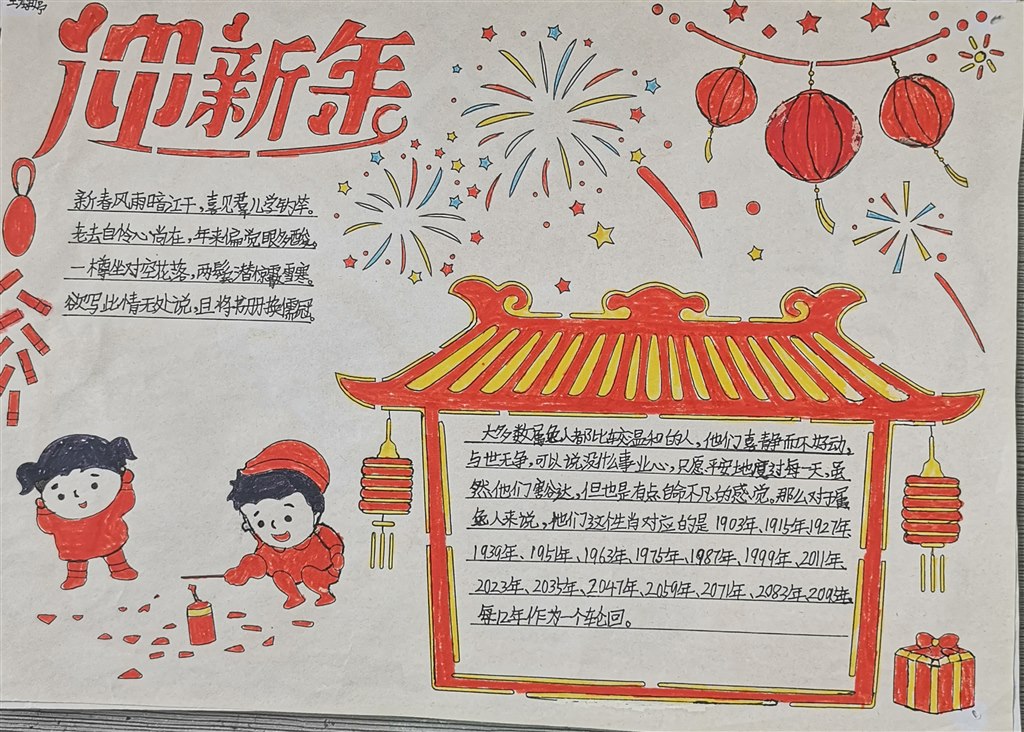 迎新年
新春风雨暗江干，喜见羣儿学钓竿。
老去自怜心尚在，年来偏觉眼多酸。
一樽坐对空花落，两鬓潜惊霰雪寒。
欲写此情无处说，且将书册换儒冠。
大多数属兔人都比较温和的人，他们喜静而不好动，
与世无争，可以说没什么事业心，只愿平安地度过每一天。虽
然他们豁达，但也是有点自命不凡的感觉。那么对于属
兔人来说，他们这个生肖对应的是1903年、1915年、1927年
1939年、1951年、1963年、1975年、1987年、1999年、2011年、
2023年、2035年、2047年、2059年、2071年、2083年、2095年，
每12年作为一个轮回。